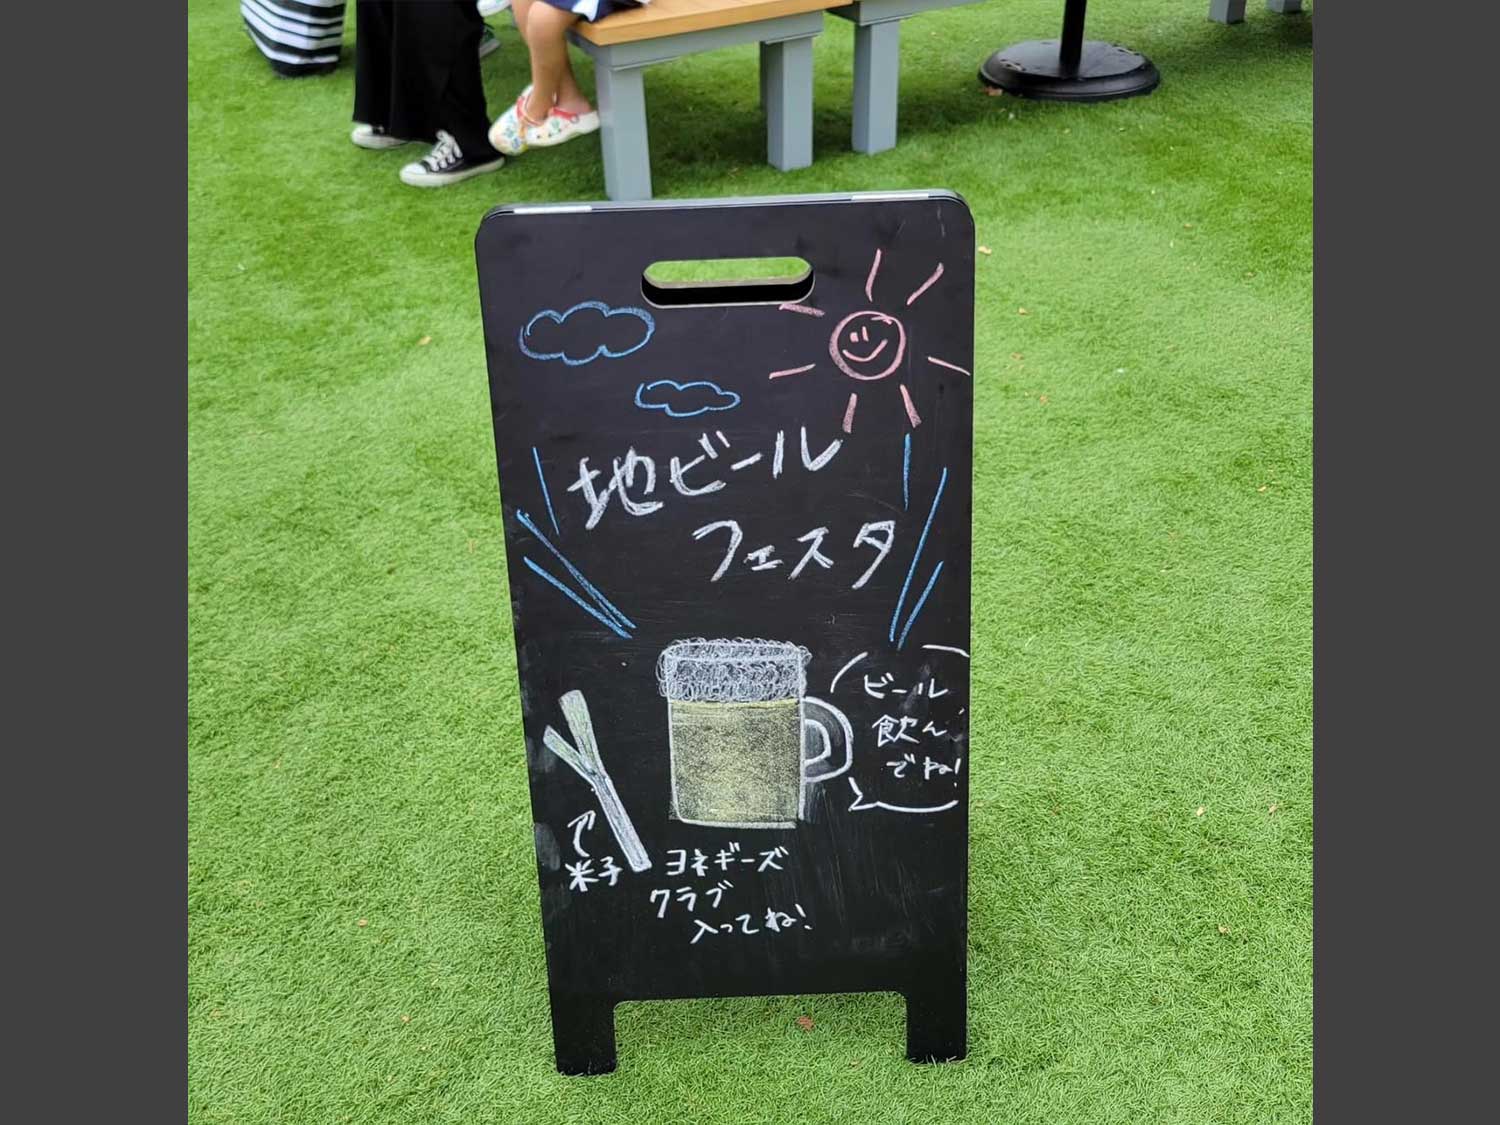 地ビール
フェスタ
ビール
飲ん
でね!
米子
ヨネギーズ
クラブ
入ってね!